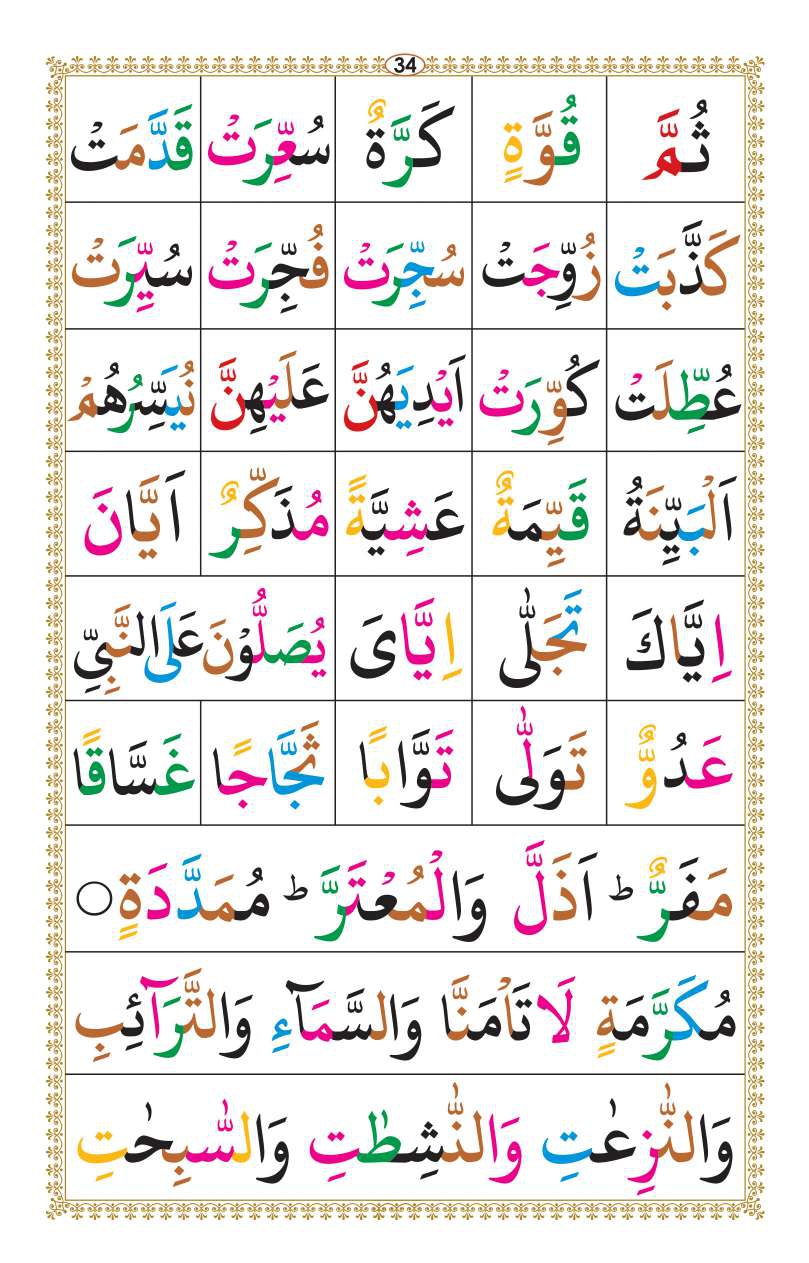 34
ثُمَّ قُوَّةٍ كَرَّةٌ سُعِّرَتْ قَدَّمَتْ
كَذَّبَتْ زُوِّجَتْ سُجِّرَتْ فُجِّرَتْ سُيِّرَتْ
عُطِّلَتْ كُوِّرَتْ اَيْدِيَهُنَّ عَلَيْهِنَّ نُيَسِّرُهُمْ
اَلْبَيِّنَةُ قَيِّمَةٌ عَشِيَّةً مُذَكِّرٌ اَيَّانَ
اِيَّاكَ تَجَلّٰى اِيَّاىَ يُصَلُّوْنَ عَلَى النَّبِيِّ
عَدُوٌّ تَوَلّٰى تَوَّابًا ثَجَّاجًا غَسَّاقًا
مَفَرٌّ ط اَذَلَّ وَالْمُعْتَرَّ ط مُمَدَّدَةٍ ○
مُكَرَّمَةٍ لَا تَاْمَنَّا وَالسَّمَآءِ وَالتَّرَآئِبِ
وَالنّٰزِعٰتِ وَالنّٰشِطٰتِ وَالسّٰبِحٰتِ